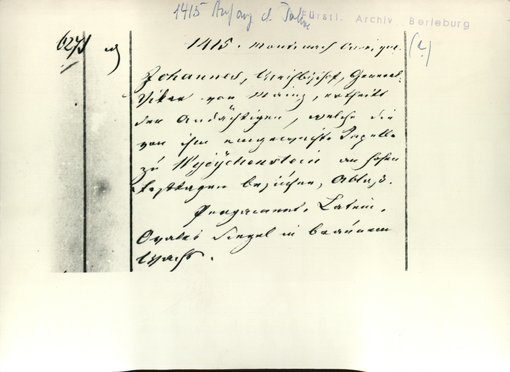 1415 Anfang d. Jahres
Fürstl. Archiv Berleburg
627 1415. (4)
Johannes, Weihbischof, General-
Vikar von Mainz, ertheilt
den Andächtigen, welche die
von ihm eingeweihte Kapelle
zu an hohen
Festtagen besuchen, Ablaß.
Pergament. Latein.
Ovales Siegel in braunem
Wachs.